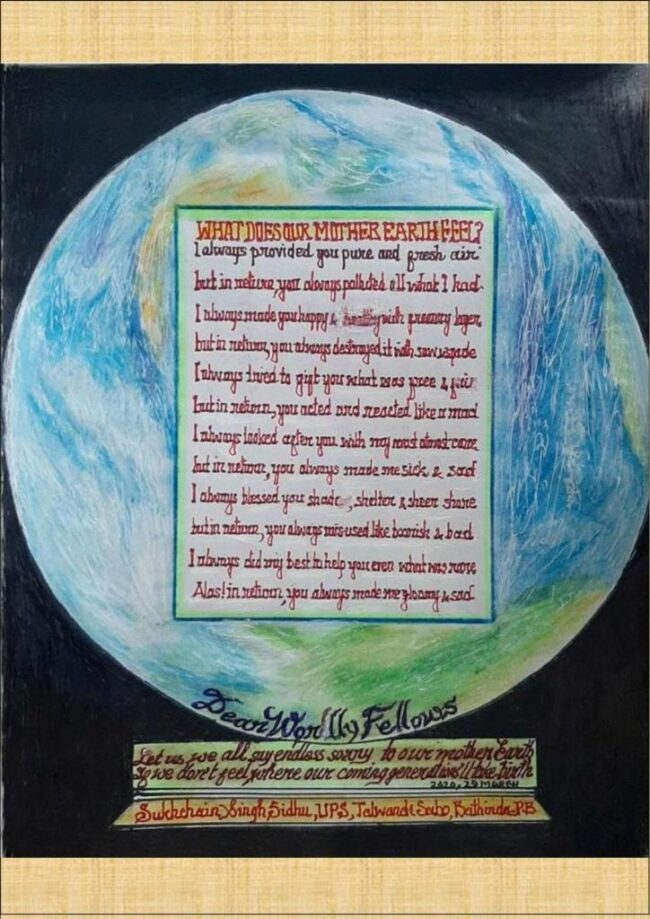 WHAT DOES OUR MOTHER EARTH FEEL?
I always provided you pure and fresh air
but in return, you always polluted all what I had
I always made you happy & healthy with greenery layer,
but in return, you always destroyed it with saw, spade
I always tried to gift you what was free & fair
but in return, you acted and reacted like a mad
I always looked after you with my most utmost care
but in return, you always made me sick & sad
I always blessed you shade, shelter & sheer share
but in return, you always mis-used like boorish & bad
I always did my best to help you even what was rare
Alas! in return, you always made me gloomy & sad
Dear Worldly Fellows
Let us, we all say endless sorry to our mother Earth
If we don't feel, where our coming generations'll take birth
2020, 29 MARCH
Sukhchain Singh Sidhu, UPS, Talwandi Sabo, Bathinda-PB